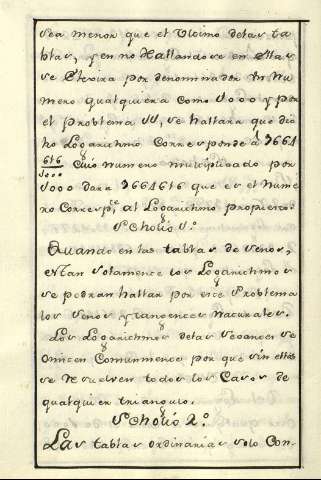 sea menor que el Ultimo delas ta
blas, y en no Hallandose en Ellas
se Elexira por denominador Un Nu
mero qualquiera como 1000 y por
el problema 11, se hallara que dic
ho Logarithmo corresponde â 3664
616/1000 Cuio numero multiplicado por
1000 dara 3664616 que es el nume
ro Corresp.te al Logarithmo propuesto.
Scholio 1.º
Quando en las tablas de senos,
estan solamente los Logarithmos
se podran hallar por este Problema
los senos y tangentes Naturales.
Los Logarithmos delas secantes se
omiten Comunmente por que sin ellos
se Resuelven todos los Casos de
qualquier triangulo.
Scholio 2.º
Las tablas ordinarias solo Con-